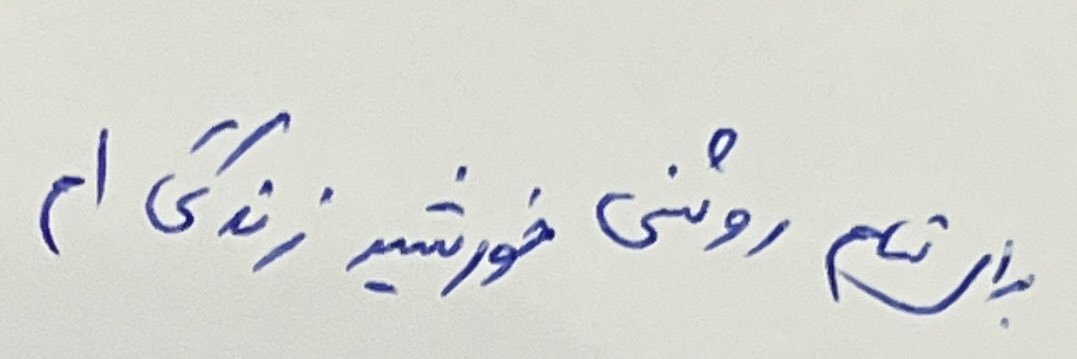 برای تمام روشنی خورشید زندگی ام